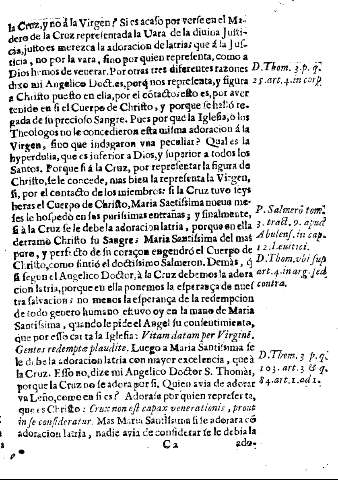 la Cruz, y no à la Virgen? Si es acaso por verse en el Ma-
dero de la Cruz representada la Uara de la divina Justi-
cia, justo es merezca la adoracion de latrias que à la Jus-
ticia, no por la vara, sino por quien representa, como a
Dios hemos de venerar. Por otras tres diferentes razones
dixo mi Angelico Doct. es, porq̃ nos representa, y figura
a Christo puesto en ella, por el cótacto; esto es, por aver
tenido en si el Cuerpo de Christo, y porque se halló re-
gada de su precioso Sangre. Pues por què la Iglesia, ò los
Theologos no le concedieron esta misma adoracion à la
Virgen, sino que indagaron una peculiar? Qual es la
hyperdulia, que es inferior a Dios, y superior a todos los
Santos. Porque si à la Cruz, por representar la figura de
Christo, se le concede, mas bien la representa la Virgen,
si, por el contacto de los miembros: si la Cruz tuvo seys
horas el Cuerpo de Christo, Maria Saetissima nueve me-
ses le hospedò en sus purissimas entrañas; y finalmente,
si à la Cruz se le debe la adoracion latria, porque en ella
derramò Christo su Sangre: Maria Santissima del mas
puro, y perfecto de su coraçon engendrò el Cuerpo de
Christo, como sintió el doctissimo Salmeron. Demàs, q̃
si segun el Angelico Doctor, à la Cruz debemos la adora
cion latria, porque en ella ponemos la esperança de nues
tra salvacion: no menos la esperança de la redempcion
de todo genero humano estuvo oy en la mano de Maria
Santissima, quando le pide el Angel su consentimiento,
que por esso canta la Iglesia: Vitam datam per Virginẽ.
Gentes redemptæ plaudite. Luego a Maria Santissima se
le debe la adoracion latria con mayor excelencia, que à
la Cruz. Esso no, dize mi Angelico Doctor S. Thomàs,
porque la Cruz no se adora por si. Quien avia de adorar
va Leño, como en si es? Adorase por quien representa,
que es Christo: Crux non est capax venerationis, prout
in se consideratur. Mas Maria Santissima si se adorara có
adoracion latria, nadie avia de considerar se le debia la
C 2 ado-
D. Thom. 3. p. q.
25. art. 4. in corp.
P. Salmerõ tom.
3. tract. 9. apud
Abulens. in cap.
12. Leuitici.
D. Thom. vbi sup
art. 4. in arg. sed
contra.
D. Thom. 3. p. q.
103. art. 3. & q.
84. art. 1. ad 1.